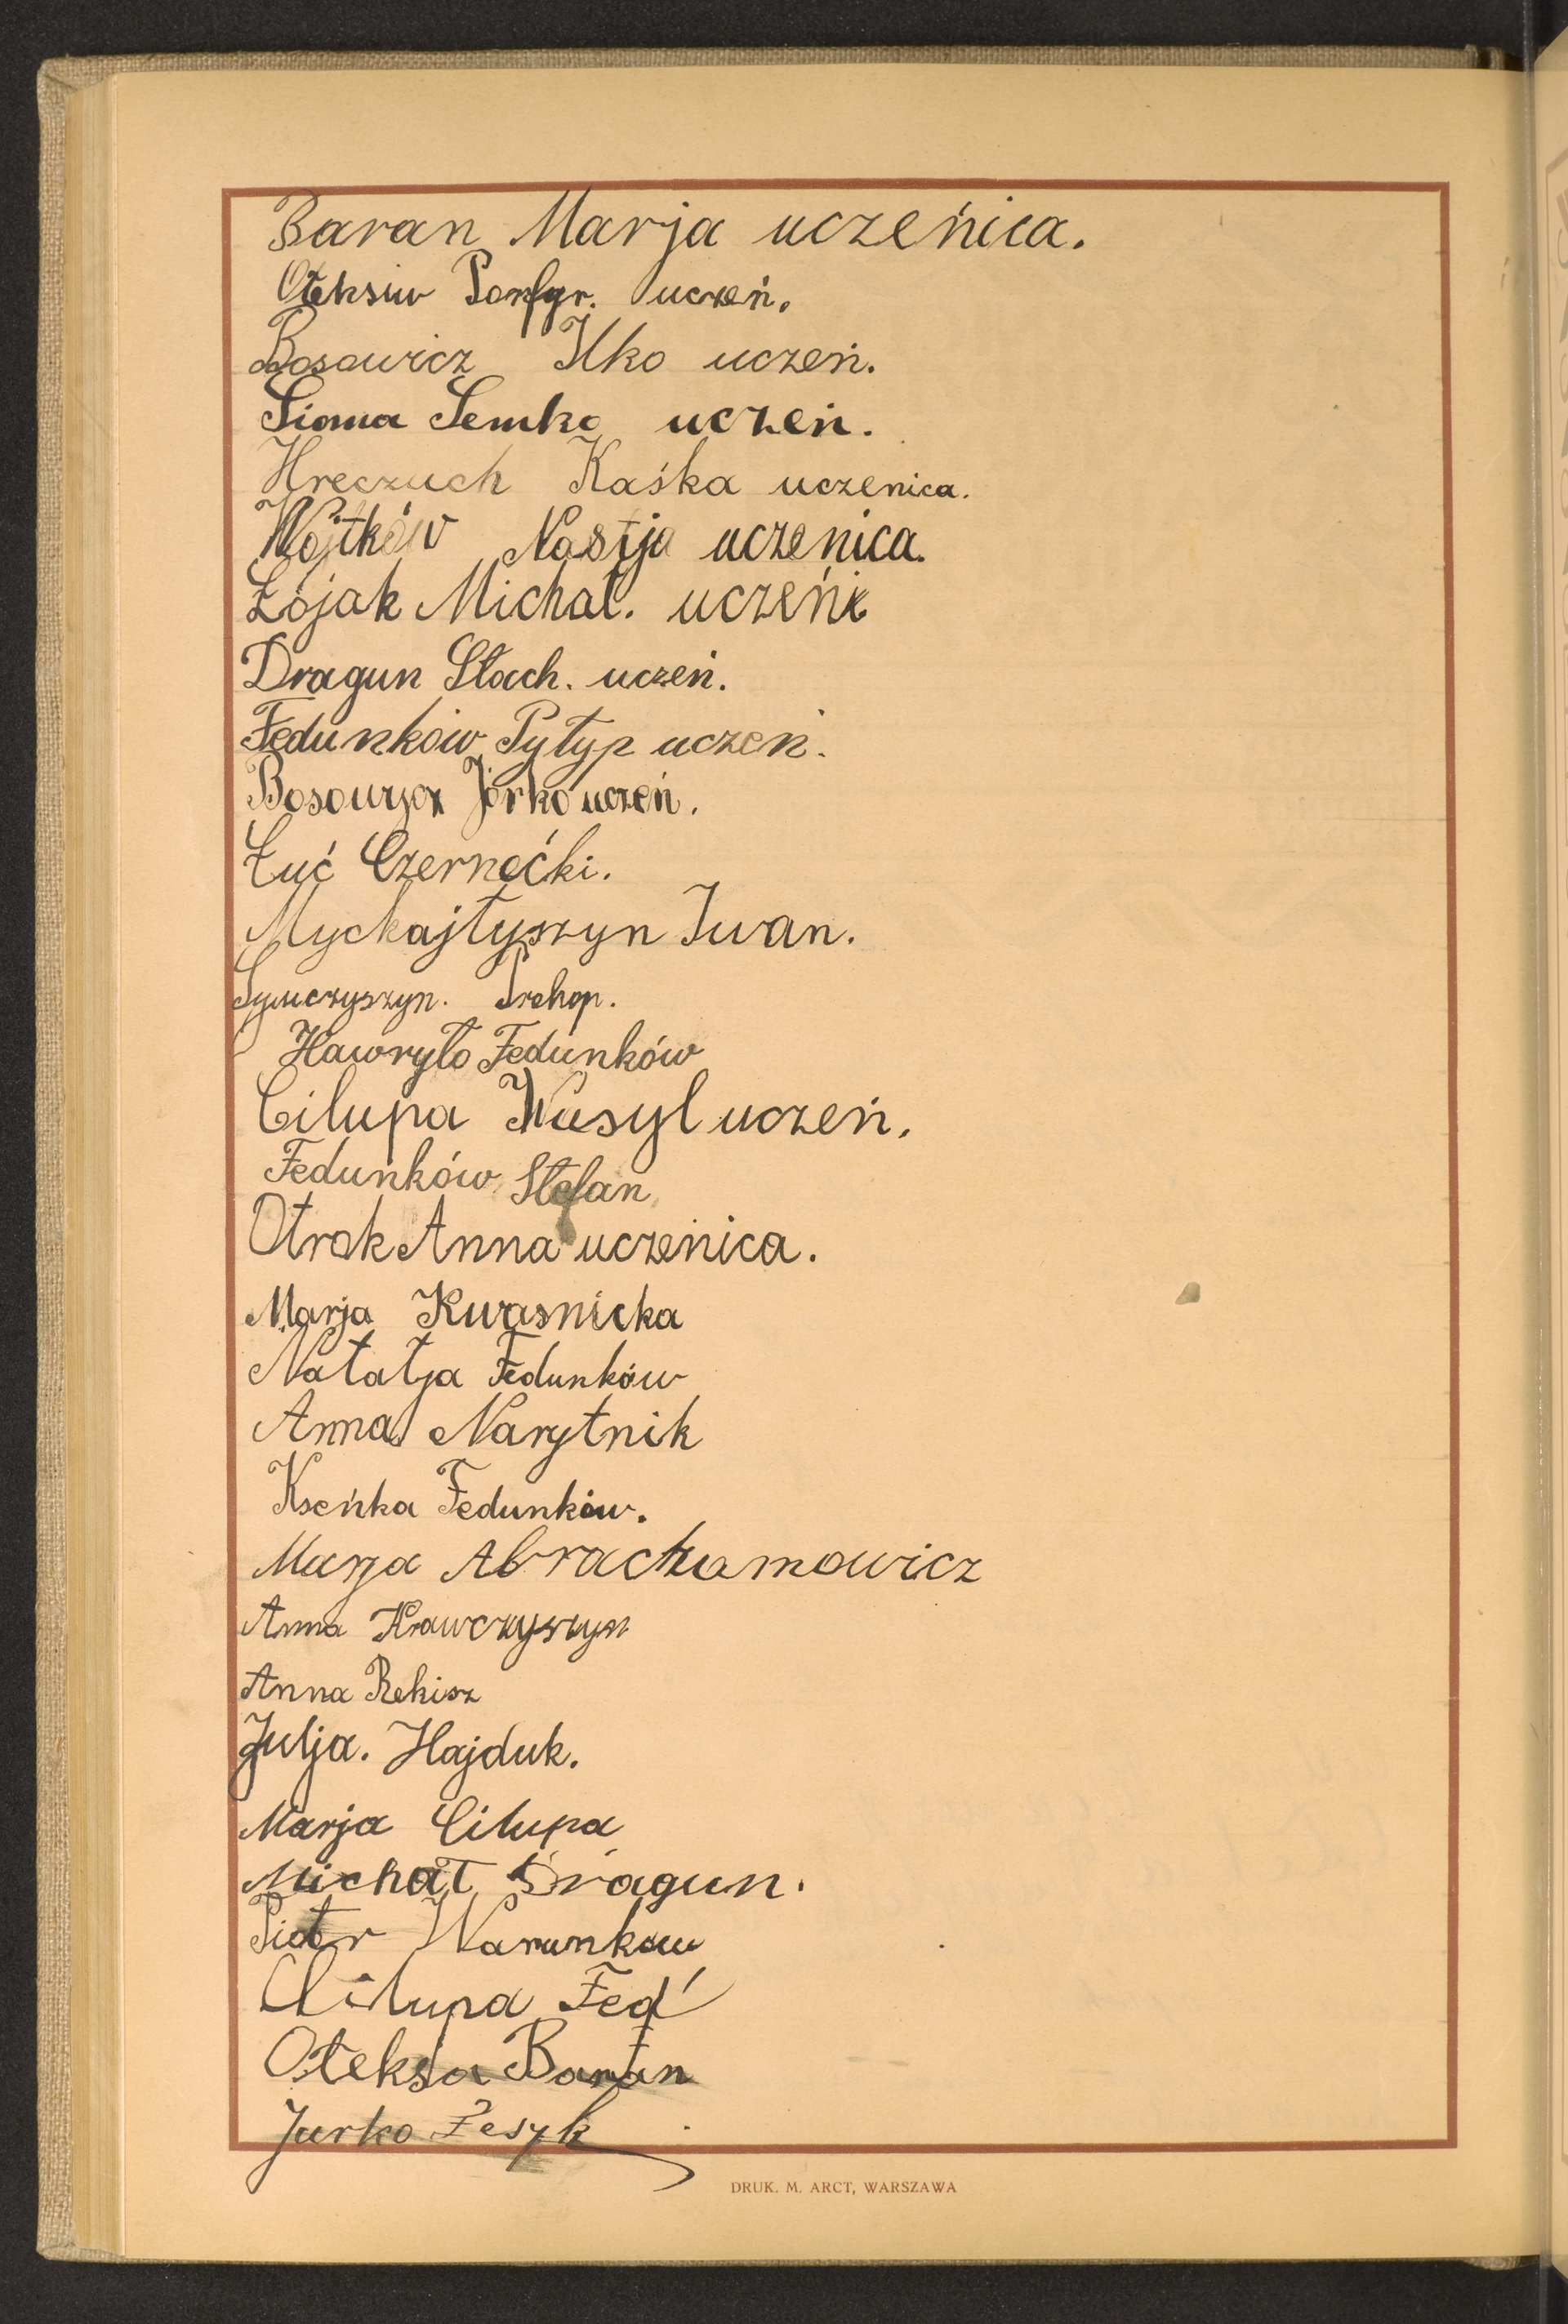 Baran Marja uczeńica.
Ołeksiw Porfyr. uczeń.
Bosowicz Ilko uczeń.
Sioma Semko uczeń.
Hreczuch Kaśka uczenica.
Wójtków Nastja uczenica.
Łojak Michał. uczeń
Dragun Stach. uczeń.
Fedunków Pyłyp uczeń.
Jórko uczeń.
Łuć Czernećki.
Myckajłyszyn Iwan.
Symczyszyn. Prokop.
Hawryło Fedunków
Cilupa Wasyl uczeń.
Feduńków Stefan
Otrok Anna uczenica.
Marja Kwasnicka
Natałja Fedunków
Anna Narytnik
Kseńka Fedunków.
Marja Abrachamowicz
Anna Krawczyszyn
Anna Rekisz
Julja. Hajduk.
Marja Cilupa
Michał Dragun.
Piotr Warunkow
Cilupa Fed'
Ołeksa Baran
Jurko Fesyk
DRUK. M. ARCT, WARSZAWA